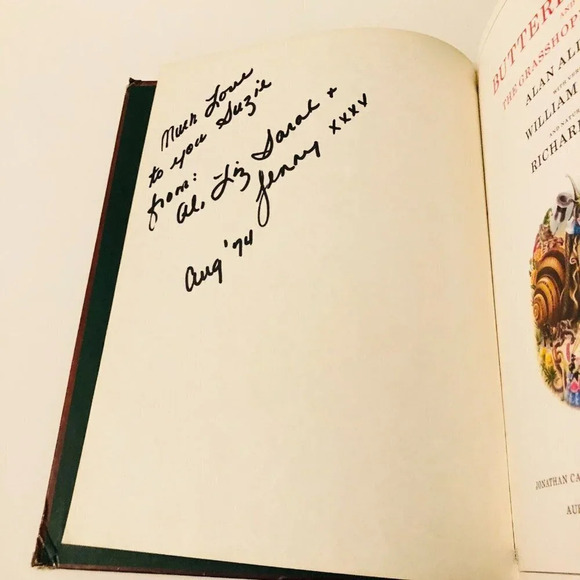 Much Love
to you Suzie
from:
Al, Liz Sarah +
Jenny xxxx
Aug '74
BUTTERF
AND
THE GRASSHOP
ALAN AL
WITH
WILLIAM
AND NATU
RICHARD
JONATHAN CA
AU